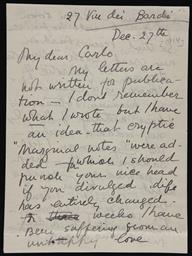 27 Via dei Bardi
Dec. 27th
My dear Carlo
My letters are
not written for publica-
tion – I don't remember
what I wrote but I have
an idea that cryptic
"marginal notes" were ad-
ded – which I should
your nice head
if you divulged. life
has entirely changed.
weeks I have
been suffering from an
unhappy love